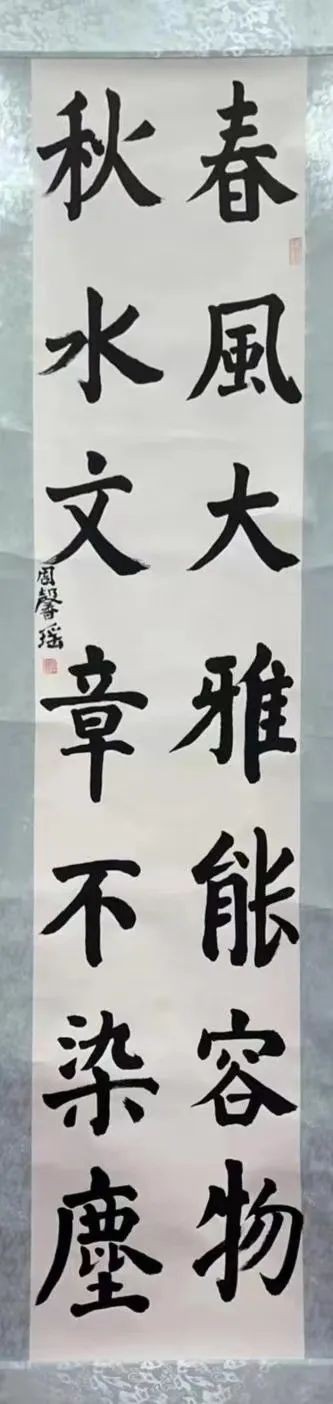 春風大雅能容物
秋水文章不染塵
周馨瑶